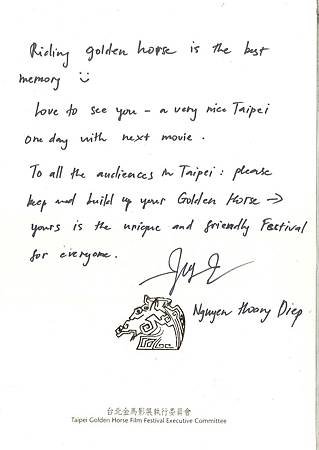 Riding golden horse is the best
memory
Love to see you – a very nice Taipei
one day with next movie.
To all the audiences in Taipei: please
keep and build up your Golden Horse →
yours is the unique and friendly Festival
for everyone.
Nguyen Hoang Diep
台北金馬影展執行委員會
Taipei Golden Horse Film Festival Executive Committee